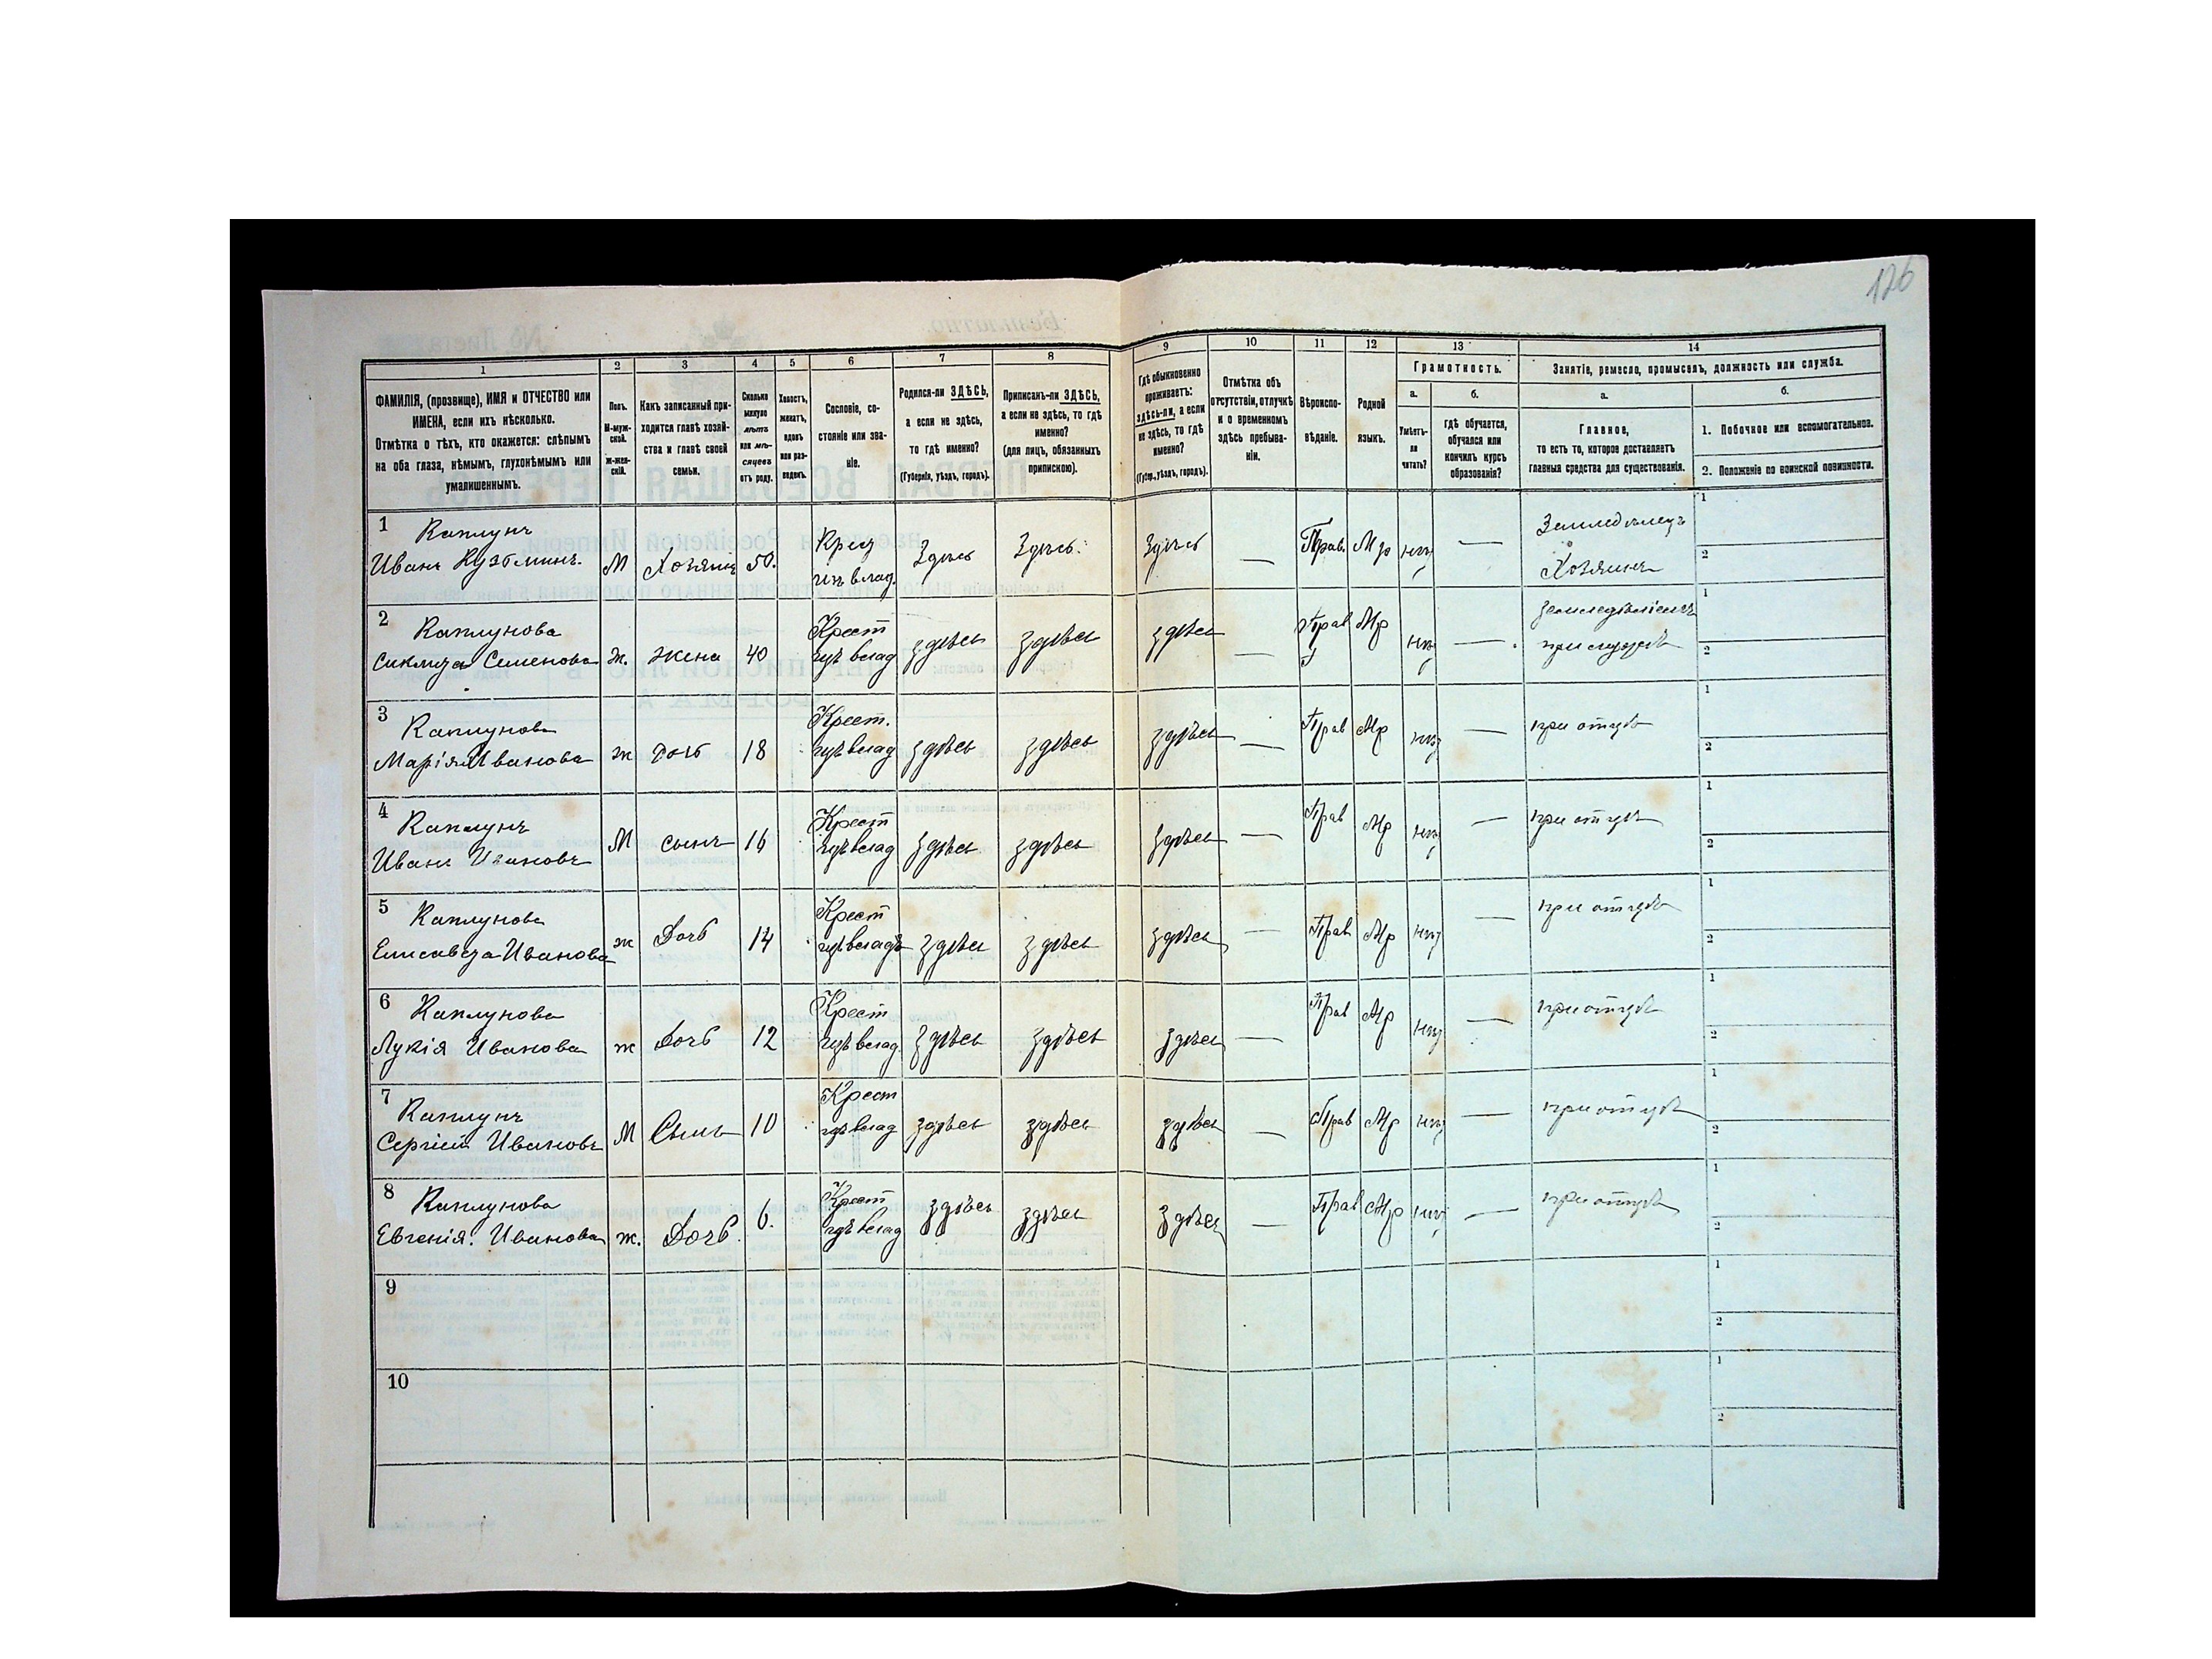 126
1 2 3 4 5 6 7 8 9 10 11 12 13 14
ФАМИЛІЯ, (прозвище), ИМЯ и ОТЧЕСТВО или
ИМЕНА, если ихъ нѣсколько.
Отмѣтка о тѣхъ, кто окажется: слѣпымъ
на оба глаза, нѣмымъ, глухонѣмымъ или
умалишеннымъ.
Полъ.
М-муж-
ской.
Ж-жен-
скій.
Какъ записанный при-
ходится главѣ хозяй-
ства и главѣ своей
семьи.
Сколько
минуло
лѣтъ
или мѣ-
сяцевъ
отъ роду.
Холостъ,
женатъ,
вдовъ
или раз-
веденъ.
Сословіе, со-
стояніе или зва-
ніе.
Родился-ли ЗДѢСЬ,
а если не здѣсь,
то гдѣ именно?
(Губернія, уѣздъ, городъ).
Приписанъ-ли ЗДѢСЬ,
а если не здѣсь, то гдѣ
именно?
(для лицъ, обязанныхъ
припискою).
Гдѣ обыкновенно
проживаетъ:
здѣсь-ли, а если
не здѣсь, то гдѣ
именно?
(Губер., уѣздъ, городъ).
Отмѣтка объ
отсутствіи, отлучкѣ
и о временномъ
здѣсь пребыва-
ніи.
Вѣроиспо-
вѣданіе.
Родной
языкъ.
Грамотность.
а.
Умѣетъ-
ли
читать?
б.
гдѣ обучается,
обучался или
кончилъ курсъ
образованія?
Занятіе, ремесло, промыселъ, должность или служба.
а.
Главное,
то есть то, которое доставляетъ
главныя средства для существованія.
б.
1. Побочное или вспомогательное.
2. Положеніе по воинской повинности.
1 Каплунъ
Иванъ Кузьминъ. М Хозяинъ 50. Здѣсь Здѣсь. Здѣсь — Прав. Мр — Земледѣлецъ
Хозяинъ
1
2
2 Каплунова
Семенова ж. жена 40 Крест здѣсь здѣсь здѣсь — Прав Мр —
1
2
3 Каплунова
Марія Иванова ж дочь 18 Крест. здѣсь здѣсь здѣсь — Прав Мр — при отцѣ
1
2
4 Каплунъ
Иванъ Ивановъ М сынъ 16 Крест здѣсь здѣсь здѣсь — Прав Мр — при отцѣ
1
2
5 Каплунова
Елисавета Иванова ж Дочь 14 Крест здѣсь здѣсь здѣсь — Прав Мр — при отцѣ
1
2
6 Каплунова
Лукія Иванова ж Дочь 12 Крест здѣсь здѣсь здѣсь — Прав Мр — при отцѣ
1
2
7 Каплунъ
Сергій Ивановъ М Сынъ 10 Крест здѣсь здѣсь здѣсь — Прав Мр — при отцѣ
1
2
8 Каплунова
Евгенія. Иванова ж. Дочь. 6. Крест здѣсь здѣсь здѣсь — Прав Мр — при отцѣ
1
2
9
1
2
10
1
2